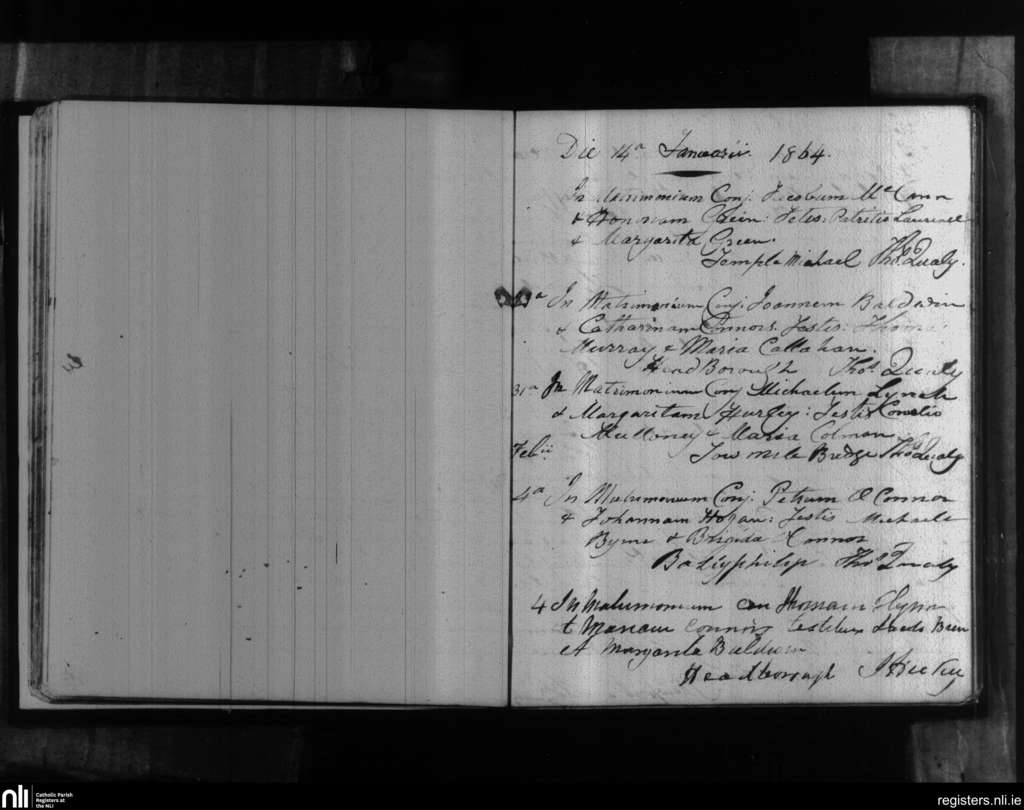 Die 14a Januarii 1864.
In Matrimonium Conj: Jacobum McCann
& Honoram Crein: Testes: Patritio Laurence
& Margarita Green.
Temple Michael Thos Qualy.
In Matrimonium Conj: Joannem Baldwin
& Catharinam Connors. Testis: Thoma
Murray & Maria Callahan.
Head Borough Thos Qualy
31a In Matrimonium Conj Michaelum Lynch
& Margaritam Hurley: Testis
& Maria Colman
Febii Bridge Thos Qualy
4a In Matrimonium Conj: Petrum O Connor
& Johannam Hogan: Testis Michaele
Byrne & Brigida Connor
Ballyphilip Thos Qualy
4 In Matrimonium con Thomam Flynn
t Mariam Connors testibus
et Margarita Baldwin
Headborough
nli
Catholic Parish
Registers at
the NLI
registers.nli.ie